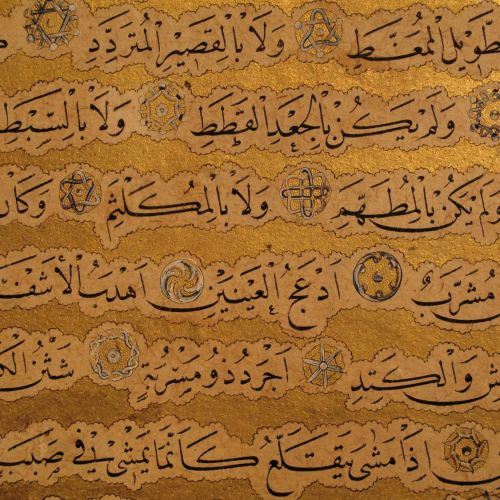 بِالطَّوِيلِ الْمُمَغَّطِ وَلَا بِالْقَصِيرِ الْمُتَرَدِّدِ
وَلَمْ يَكُنْ بِالْجَعْدِ الْقَطَطِ وَلَا بِالسَّبِطِ
وَلَمْ يَكُنْ بِالْمُطَهَّمِ وَلَا بِالْمُكَلْثَمِ وَكَانَ
مُشَرَّبٌ أَدْعَجُ الْعَيْنَيْنِ أَهْدَبُ الْأَشْفَارِ
وَالْكَتَدِ أَجْرَدُ ذُو مَسْرُبَةٍ شَثْنُ
إِذَا مَشَى يَتَقَلَّعُ كَأَنَّمَا يَمْشِي فِي صَبَبٍ